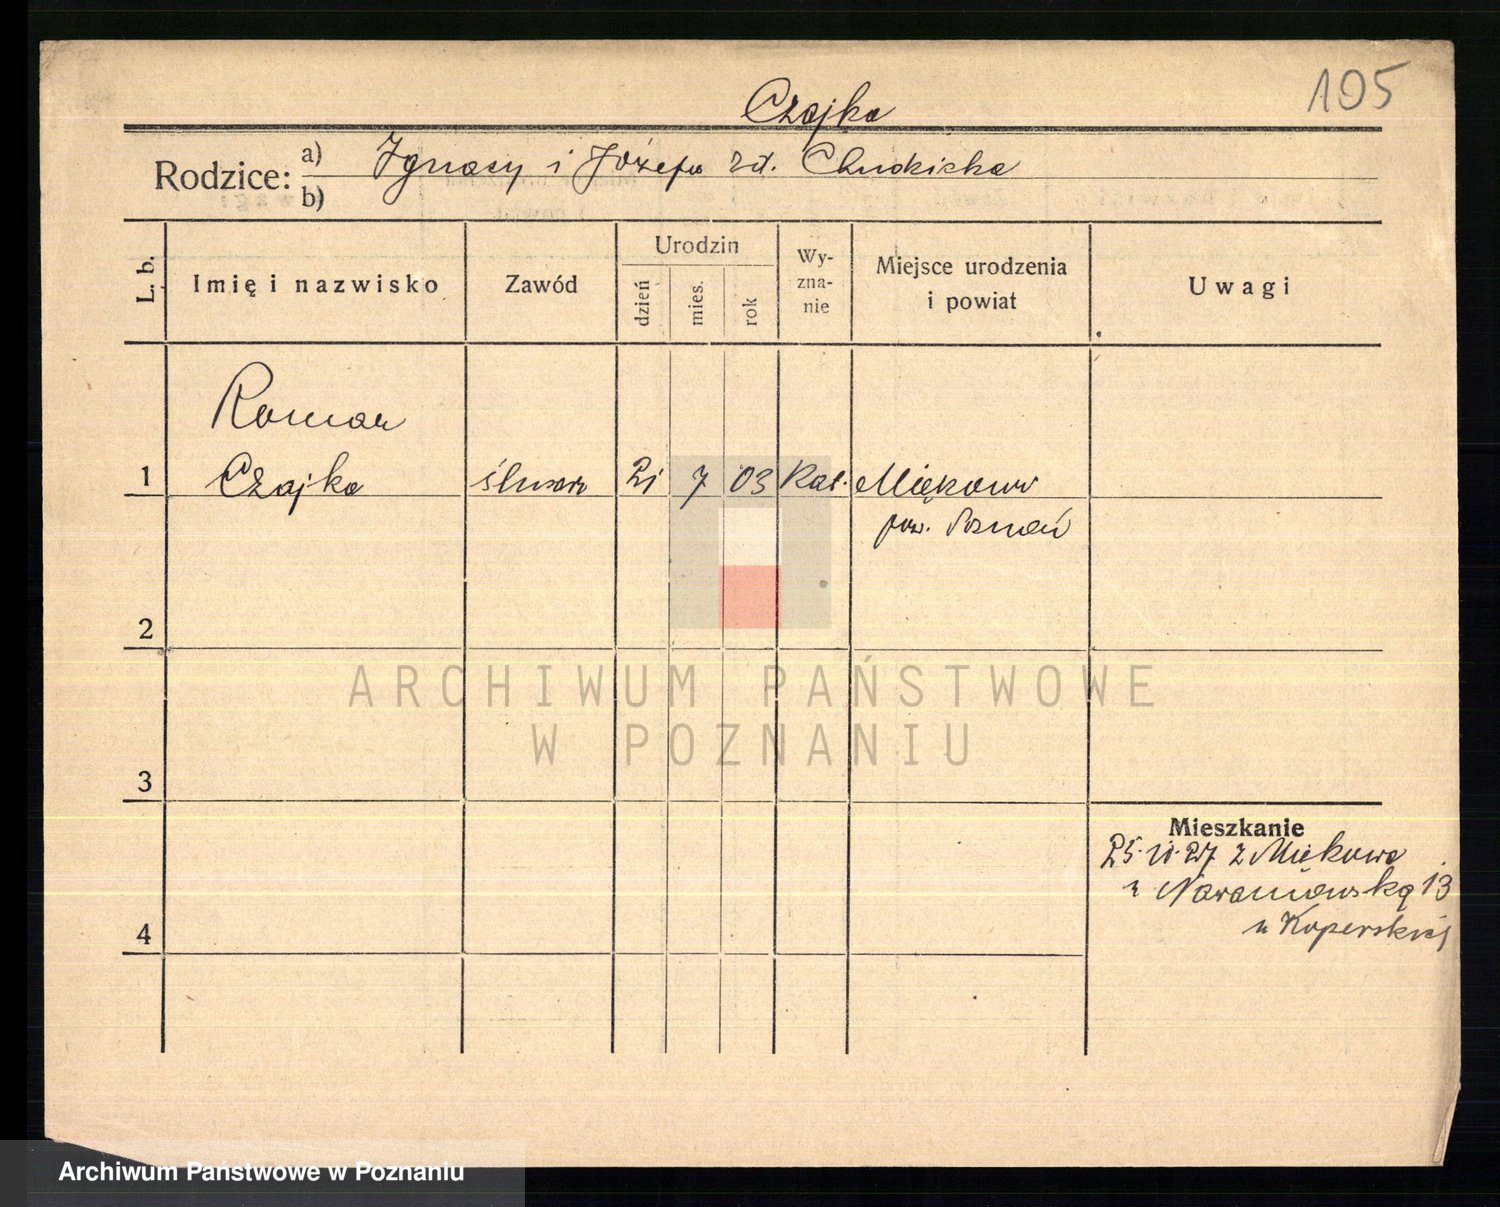 105
Czajka
Rodzice: a) Ignacy i Józefa zd. Chudzicka
b)
L. b.
Imię i nazwisko
Zawód
Urodzin
dzień
mies.
rok
Wy-
zna-
nie
Miejsce urodzenia
i powiat
Uwagi
Roman
1 Czajka ślusarz 21 7 03 Kat. Miękowo
pow. Poznań
2
3
4
Mieszkanie
25.11.27 z Miękowa
n Naramowską 13
u Koperskiej
ARCHIWUM PAŃSTWOWE
W POZNANIU
Archiwum Państwowe w Poznaniu